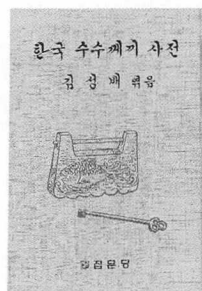 한국 수수께끼 사전
김성배 엮음
집문당